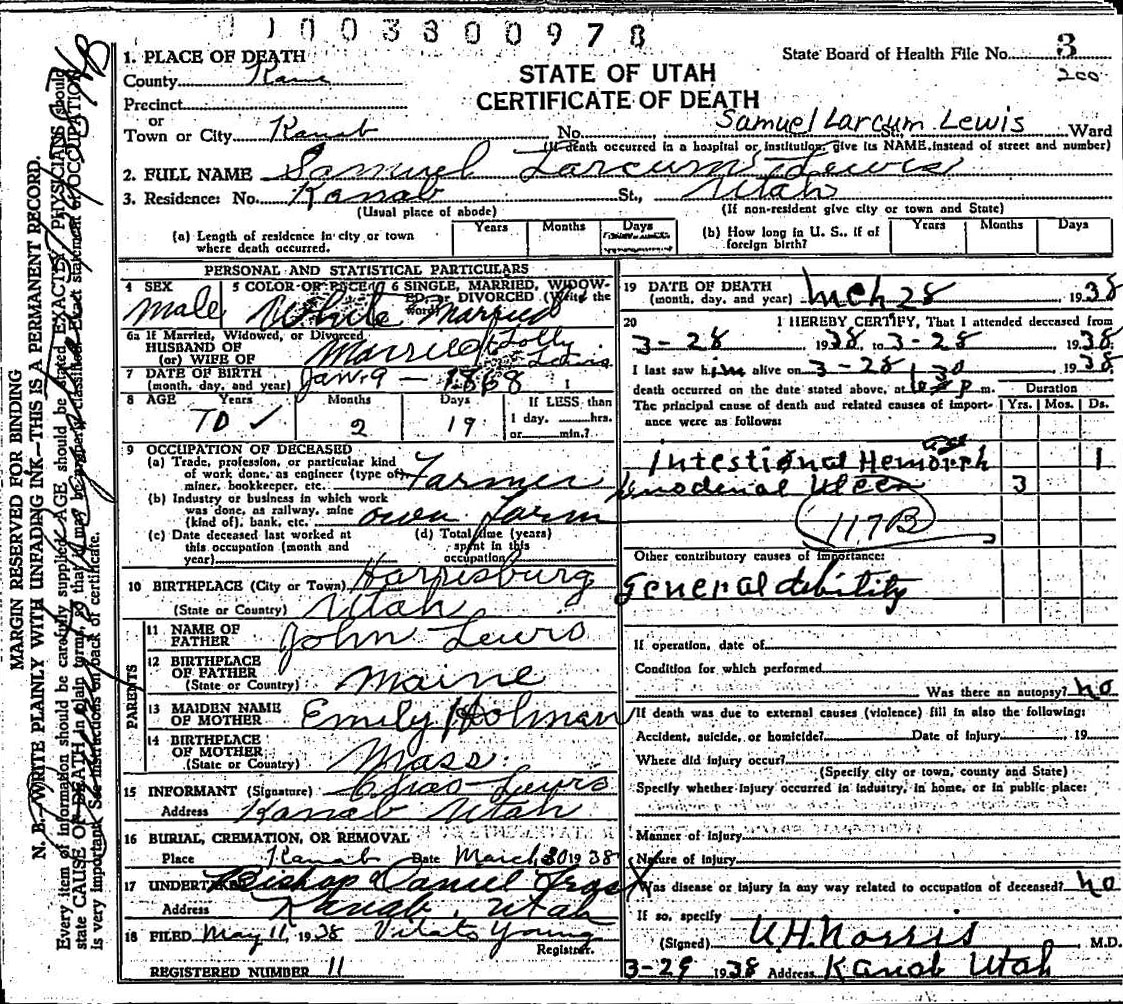 01003800978
1. PLACE OF DEATH
County Kane
Precinct
or
Town or City Kanab No. St. Ward
State Board of Health File No. 3
200
STATE OF UTAH
CERTIFICATE OF DEATH
Samuel Larcum Lewis
(If death occurred in a hospital or institution, give its NAME instead of street and number)
2. FULL NAME Samuel Larcum Lewis
3. Residence: No. Kanab St., Utah
(Usual place of abode) (If non-resident give city or town and State)
(a) Length of residence in city or town where death occurred. Years Months Days
(b) How long in U. S., if of foreign birth? Years Months Days
PERSONAL AND STATISTICAL PARTICULARS
4 SEX Male
5 COLOR OR RACE White
6 SINGLE, MARRIED, WIDOWED, or DIVORCED (Write the word) Married
6a If Married, Widowed, or Divorced
HUSBAND OF
(or) WIFE OF Married Lolly Lewis
7 DATE OF BIRTH
(month, day, and year) Jan. 9 - 1868
8 AGE Years Months Days If LESS than
70 2 19 1 day, hrs.
or min.?
9 OCCUPATION OF DECEASED
(a) Trade, profession, or particular kind
of work done, as engineer (type of)
miner, bookkeeper, etc. Farmer
(b) Industry or business in which work
was done, as railway, mine
(kind of), bank, etc. own Farm
(c) Date deceased last worked at
this occupation (month and
year)
(d) Total time (years)
spent in this
occupation
10 BIRTHPLACE (City or Town) Harrisburg
(State or Country) Utah
PARENTS
11 NAME OF
FATHER John Lewis
12 BIRTHPLACE
OF FATHER
(State or Country) Maine
13 MAIDEN NAME
OF MOTHER Emily Holman
14 BIRTHPLACE
OF MOTHER
(State or Country) Mass.
15 INFORMANT (Signature) Chas Lewis
Address Kanab Utah
16 BURIAL, CREMATION, OR REMOVAL
Place Kanab Date March 30 1938
17 UNDERTAKER Bishop Daniel Frost
Address Kanab, Utah
18 FILED May 11, 1938 Young
Registrar.
REGISTERED NUMBER 11
19 DATE OF DEATH
(month, day, and year) Mch 28 1938
20 I HEREBY CERTIFY, That I attended deceased from
3-28 1938 to 3-28 1938
I last saw him alive on 3-28 1938
death occurred on the date stated above, at 1 30 p m.
The principal cause of death and related causes of importance were as follows:
Duration
Yrs. Mos. Ds.
Intestional Hemorrh 1
Ulcer 3
117B
Other contributory causes of importance:
General debility
If operation, date of
Condition for which performed
Was there an autopsy? no
If death was due to external causes (violence) fill in also the following:
Accident, suicide, or homicide? Date of injury , 19
Where did injury occur?
(Specify city or town, county and State)
Specify whether injury occurred in industry, in home, or in public place:
Manner of injury
Nature of injury
Was disease or injury in any way related to occupation of deceased? no
If so, specify
(Signed) U.H. Norris , M.D.
3-29 1938 Address Kanab Utah
MARGIN RESERVED FOR BINDING
N. B.—WRITE PLAINLY WITH UNFADING INK—THIS IS A PERMANENT RECORD.
Every item of information should be carefully supplied. AGE should be stated EXACTLY. PHYSICIANS should
state CAUSE OF DEATH in plain terms, so that it may be properly classified. Exact statement of OCCUPATION
is very important. See instructions on back of certificate.